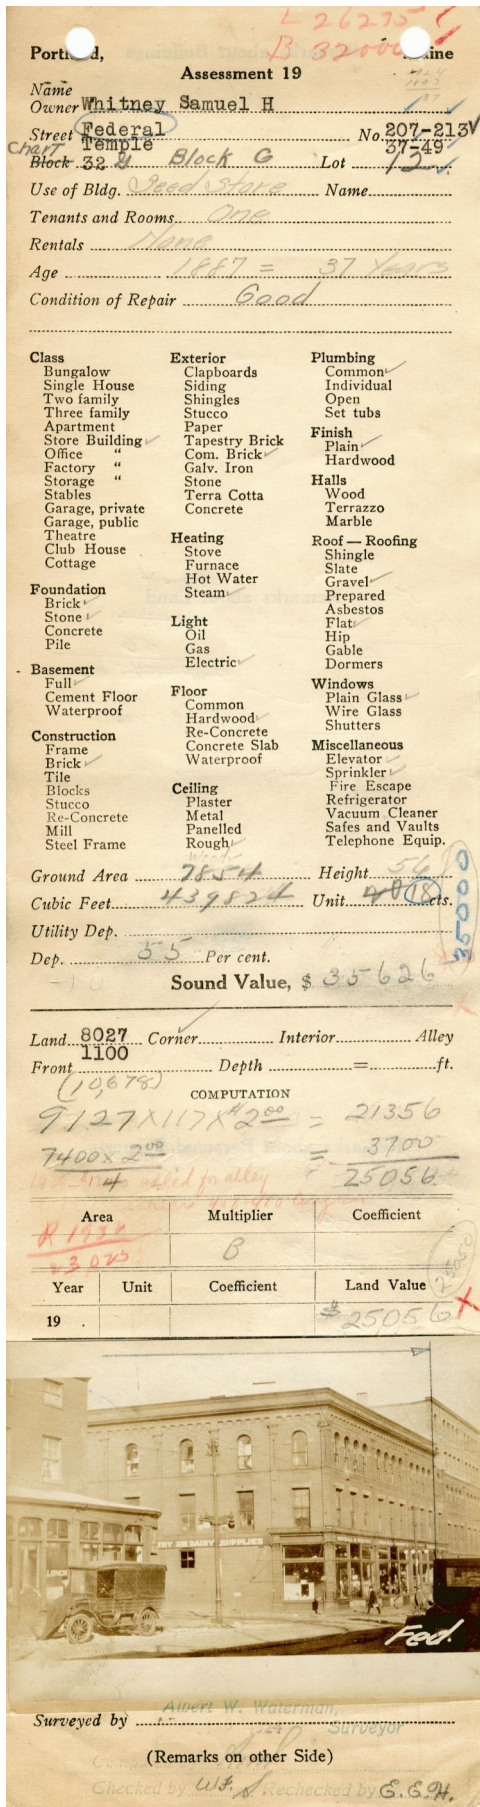 L 26275
B 32000
Portland, Maine
Assessment 19
Name
Owner Whitney Samuel H
Street Federal No. 207-213
Temple 37-49
Chart
Block 32 G Block G Lot 12
Use of Bldg. Seed Store Name
Tenants and Rooms One
Rentals None
Age 1887 = 37 Years
Condition of Repair Good
Class
Bungalow
Single House
Two family
Three family
Apartment
Store Building
Office "
Factory "
Storage "
Stables
Garage, private
Garage, public
Theatre
Club House
Cottage
Foundation
Brick
Stone
Concrete
Pile
Basement
Full
Cement Floor
Waterproof
Construction
Frame
Brick
Tile
Blocks
Stucco
Re-Concrete
Mill
Steel Frame
Exterior
Clapboards
Siding
Shingles
Stucco
Paper
Tapestry Brick
Com. Brick
Galv. Iron
Stone
Terra Cotta
Concrete
Heating
Stove
Furnace
Hot Water
Steam
Light
Oil
Gas
Electric
Floor
Common
Hardwood
Re-Concrete
Concrete Slab
Waterproof
Ceiling
Plaster
Metal
Panelled
Rough
Wood
Plumbing
Common
Individual
Open
Set tubs
Finish
Plain
Hardwood
Halls
Wood
Terrazzo
Marble
Roof — Roofing
Shingle
Slate
Gravel
Prepared
Asbestos
Flat
Hip
Gable
Dormers
Windows
Plain Glass
Wire Glass
Shutters
Miscellaneous
Elevator
Sprinkler
Fire Escape
Refrigerator
Vacuum Cleaner
Safes and Vaults
Telephone Equip.
Ground Area 7854 Height 56
Cubic Feet 439824 Unit 18 cts.
35000
Utility Dep.
Dep. 55 Per cent.
Sound Value, $ 35626
Land 8027 Corner Interior Alley
1100
Front Depth = ft.
(10,678)
COMPUTATION
9127 X 117 X # 2 00 = 21356
7400 x 2 00 = 3700
4
25056
added for alley
Area Multiplier Coefficient
R 1930
23,025
B
25050
Year Unit Coefficient Land Value
19 . $ 25056 X
TRY DAIRY SUPPLIES
LUNCH
Fed.
Albert W. Waterman,
Surveyed by Surveyor
(Remarks on other Side)
Checked by W.F.S. Rechecked by E.E.H.